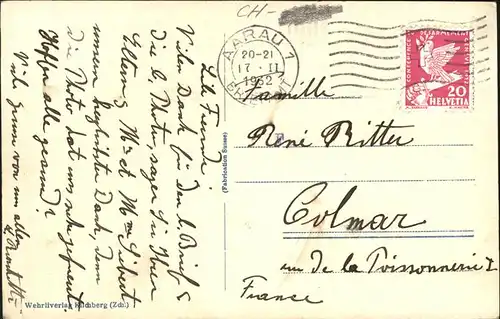 CH-
AARAU 1
20-21
17. II
1932
CONFERENCE DU DESARMEMENT GENEVE 1932
20
HELVETIA
Lb. Freunde!
Viele Dank für den l. Brief &
die l. Photo, sagen Sie Ihren
Eltern Mr et Mme Sibert
unsern herzlichsten Dank, denn
die Photo hat uns sehr gefreut.
Hoffe alle gesund?
Viele von uns allen
(Fabrication Suisse)
Wehrliverlag Kilchberg (Zch.)
Famille
René Ritter
Colmar
rue De la Poissonnerie 2
France